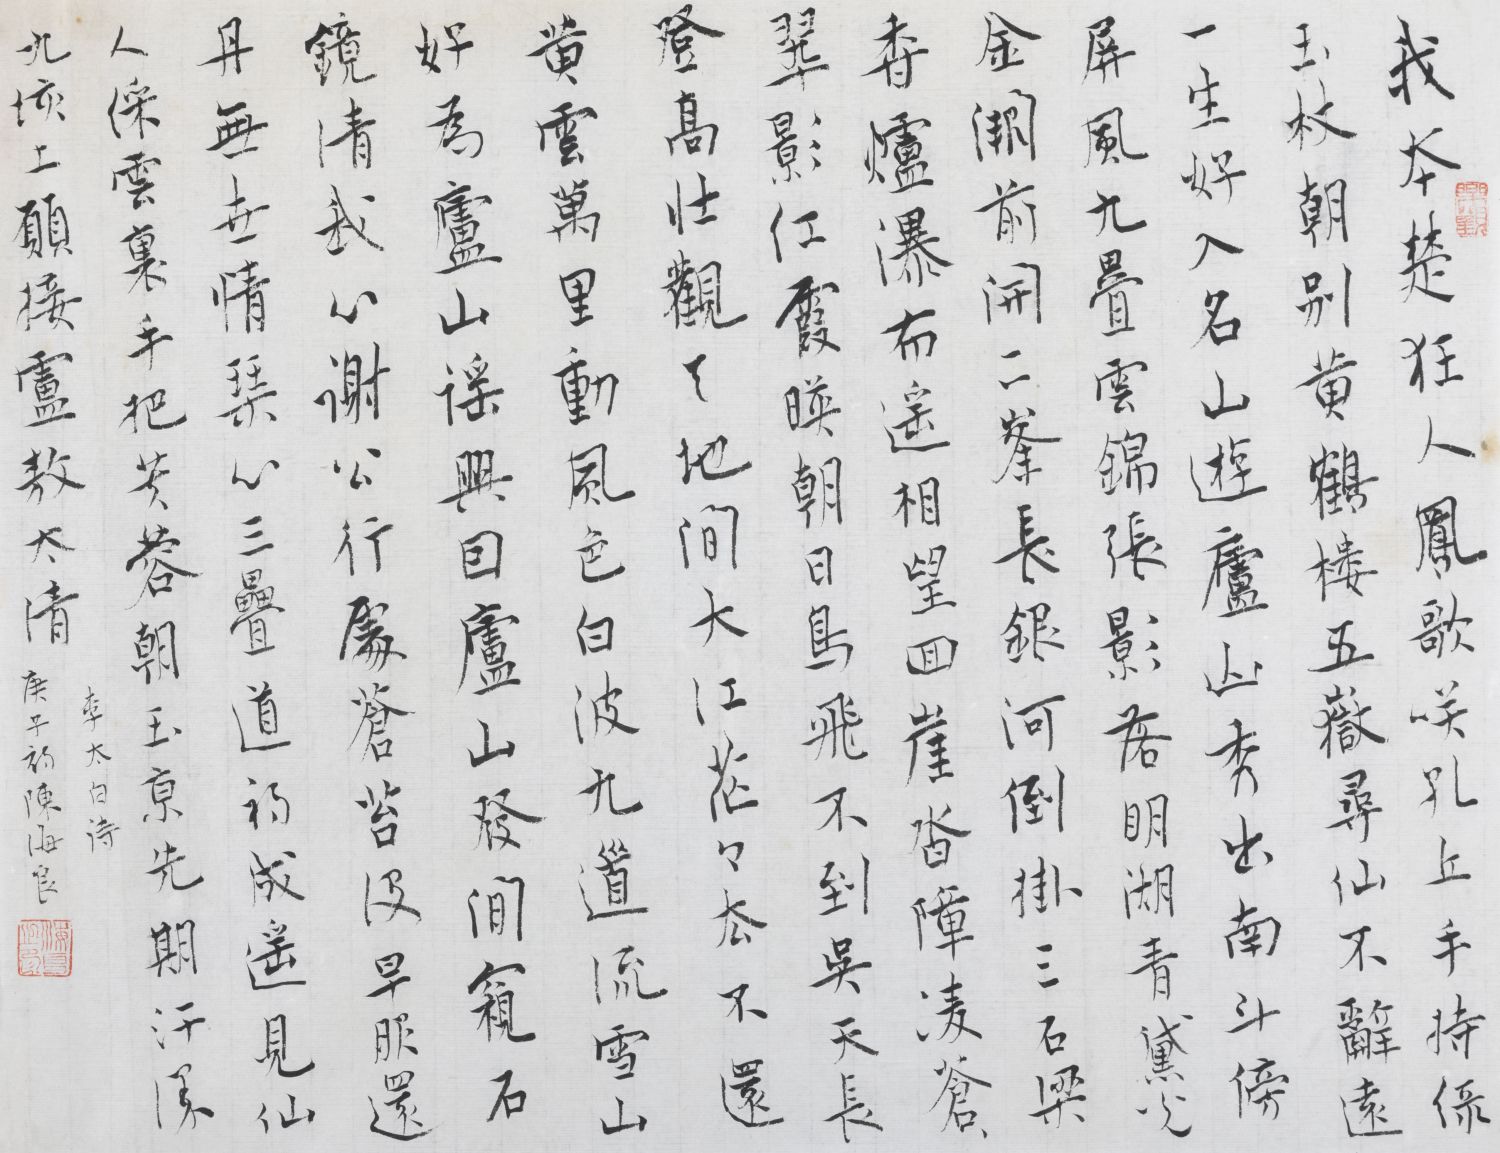 我本楚狂人鳳歌咲孔丘手持綠
玉枚朝别黄鶴樓五嶽尋仙不辭遠
一生好入名山遊廬山秀出南斗傍
屏風九疊雲錦張影落明湖青黛光
金闕前開二峯長銀河倒掛三石梁
香爐瀑布遥相望回崖沓障凌蒼〻
翠影红霞暎朝日鳥飛不到吳天長
登高壮觀天地間大江茫〻去不還
黄雲萬里動風色白波九道流雪山
好為廬山謡興因廬山發閒窺石
鏡清我心謝公行處蒼苔没早服還
丹無世情琴心三疊道初成遥見仙
人綵雲裏手把芙蓉朝玉京先期汗漫
九垓上願接盧敖太清
李太白诗
庚子初陳海良